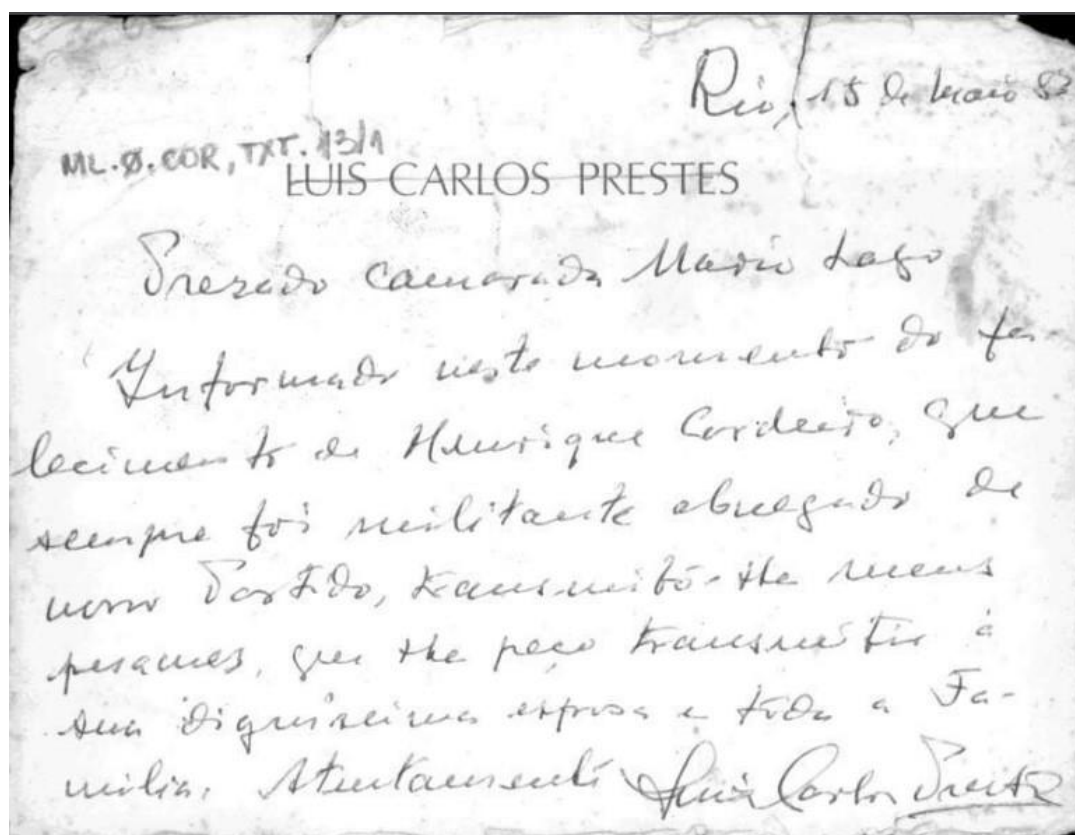 Rio, 15 de maio 83
ML.Ø.COR, TXT. 13/1
LUIS CARLOS PRESTES
Prezado Camarada Mario Lago
Informado neste momento do fa-
lecimento de Henrique Cordeiro, que
sempre foi militante abnegado de
nosso Partido, transmito-lhe meus
pesames, que lhe peço transmitir à
sua digníssima esposa e toda a Fa-
milia. Atentamente Luis Carlos Prestes